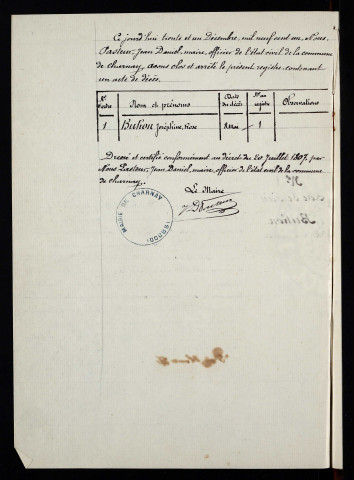 Ce jourd'hui trente et un Décembre, mil neuf cent un, Nous
Pasteur, Jean Daniel, maire, officier de l'état civil de la commune
de Charnay, avons clos et arrêté le présent registre contenant
un acte de décès.
Nos d'ordre Nom et prénoms Date du décès No au registre Observations
1 Bulion Joséphine, Rose 8 Mai 1
Dressé et certifié conformément au décret du 20 Juillet 1807, par
Nous Pasteur, Jean Daniel, maire, officier de l'état civil de la commune
de Charnay.
Le Maire
MAIRIE DE CHARNAY (DOUBS)